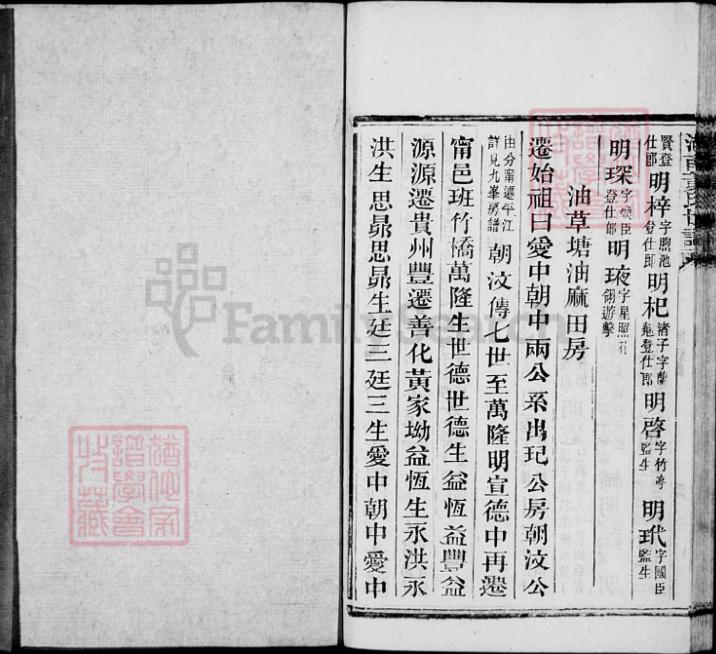 賢登仕郎明梓字登仕郎明杞字登仕郎明啓字竹亭監生明玳字國臣監生
明琛字臣登仕郎明㻑字星照翎游擊
油草塘油麻田房
遷始祖曰愛中朝中兩公系出玘公房朝汶公
由分甯遷平江詳見九峯房譜朝汶傳七世至萬隆明宣德中再遷
甯邑班竹橋萬隆生世德世德生益恆益豐益
源源遷貴州豐遷善化黃家坳益恆生永洪永
洪生思鼎思鼎生廷三廷三生愛中朝中愛中
FamilySearch